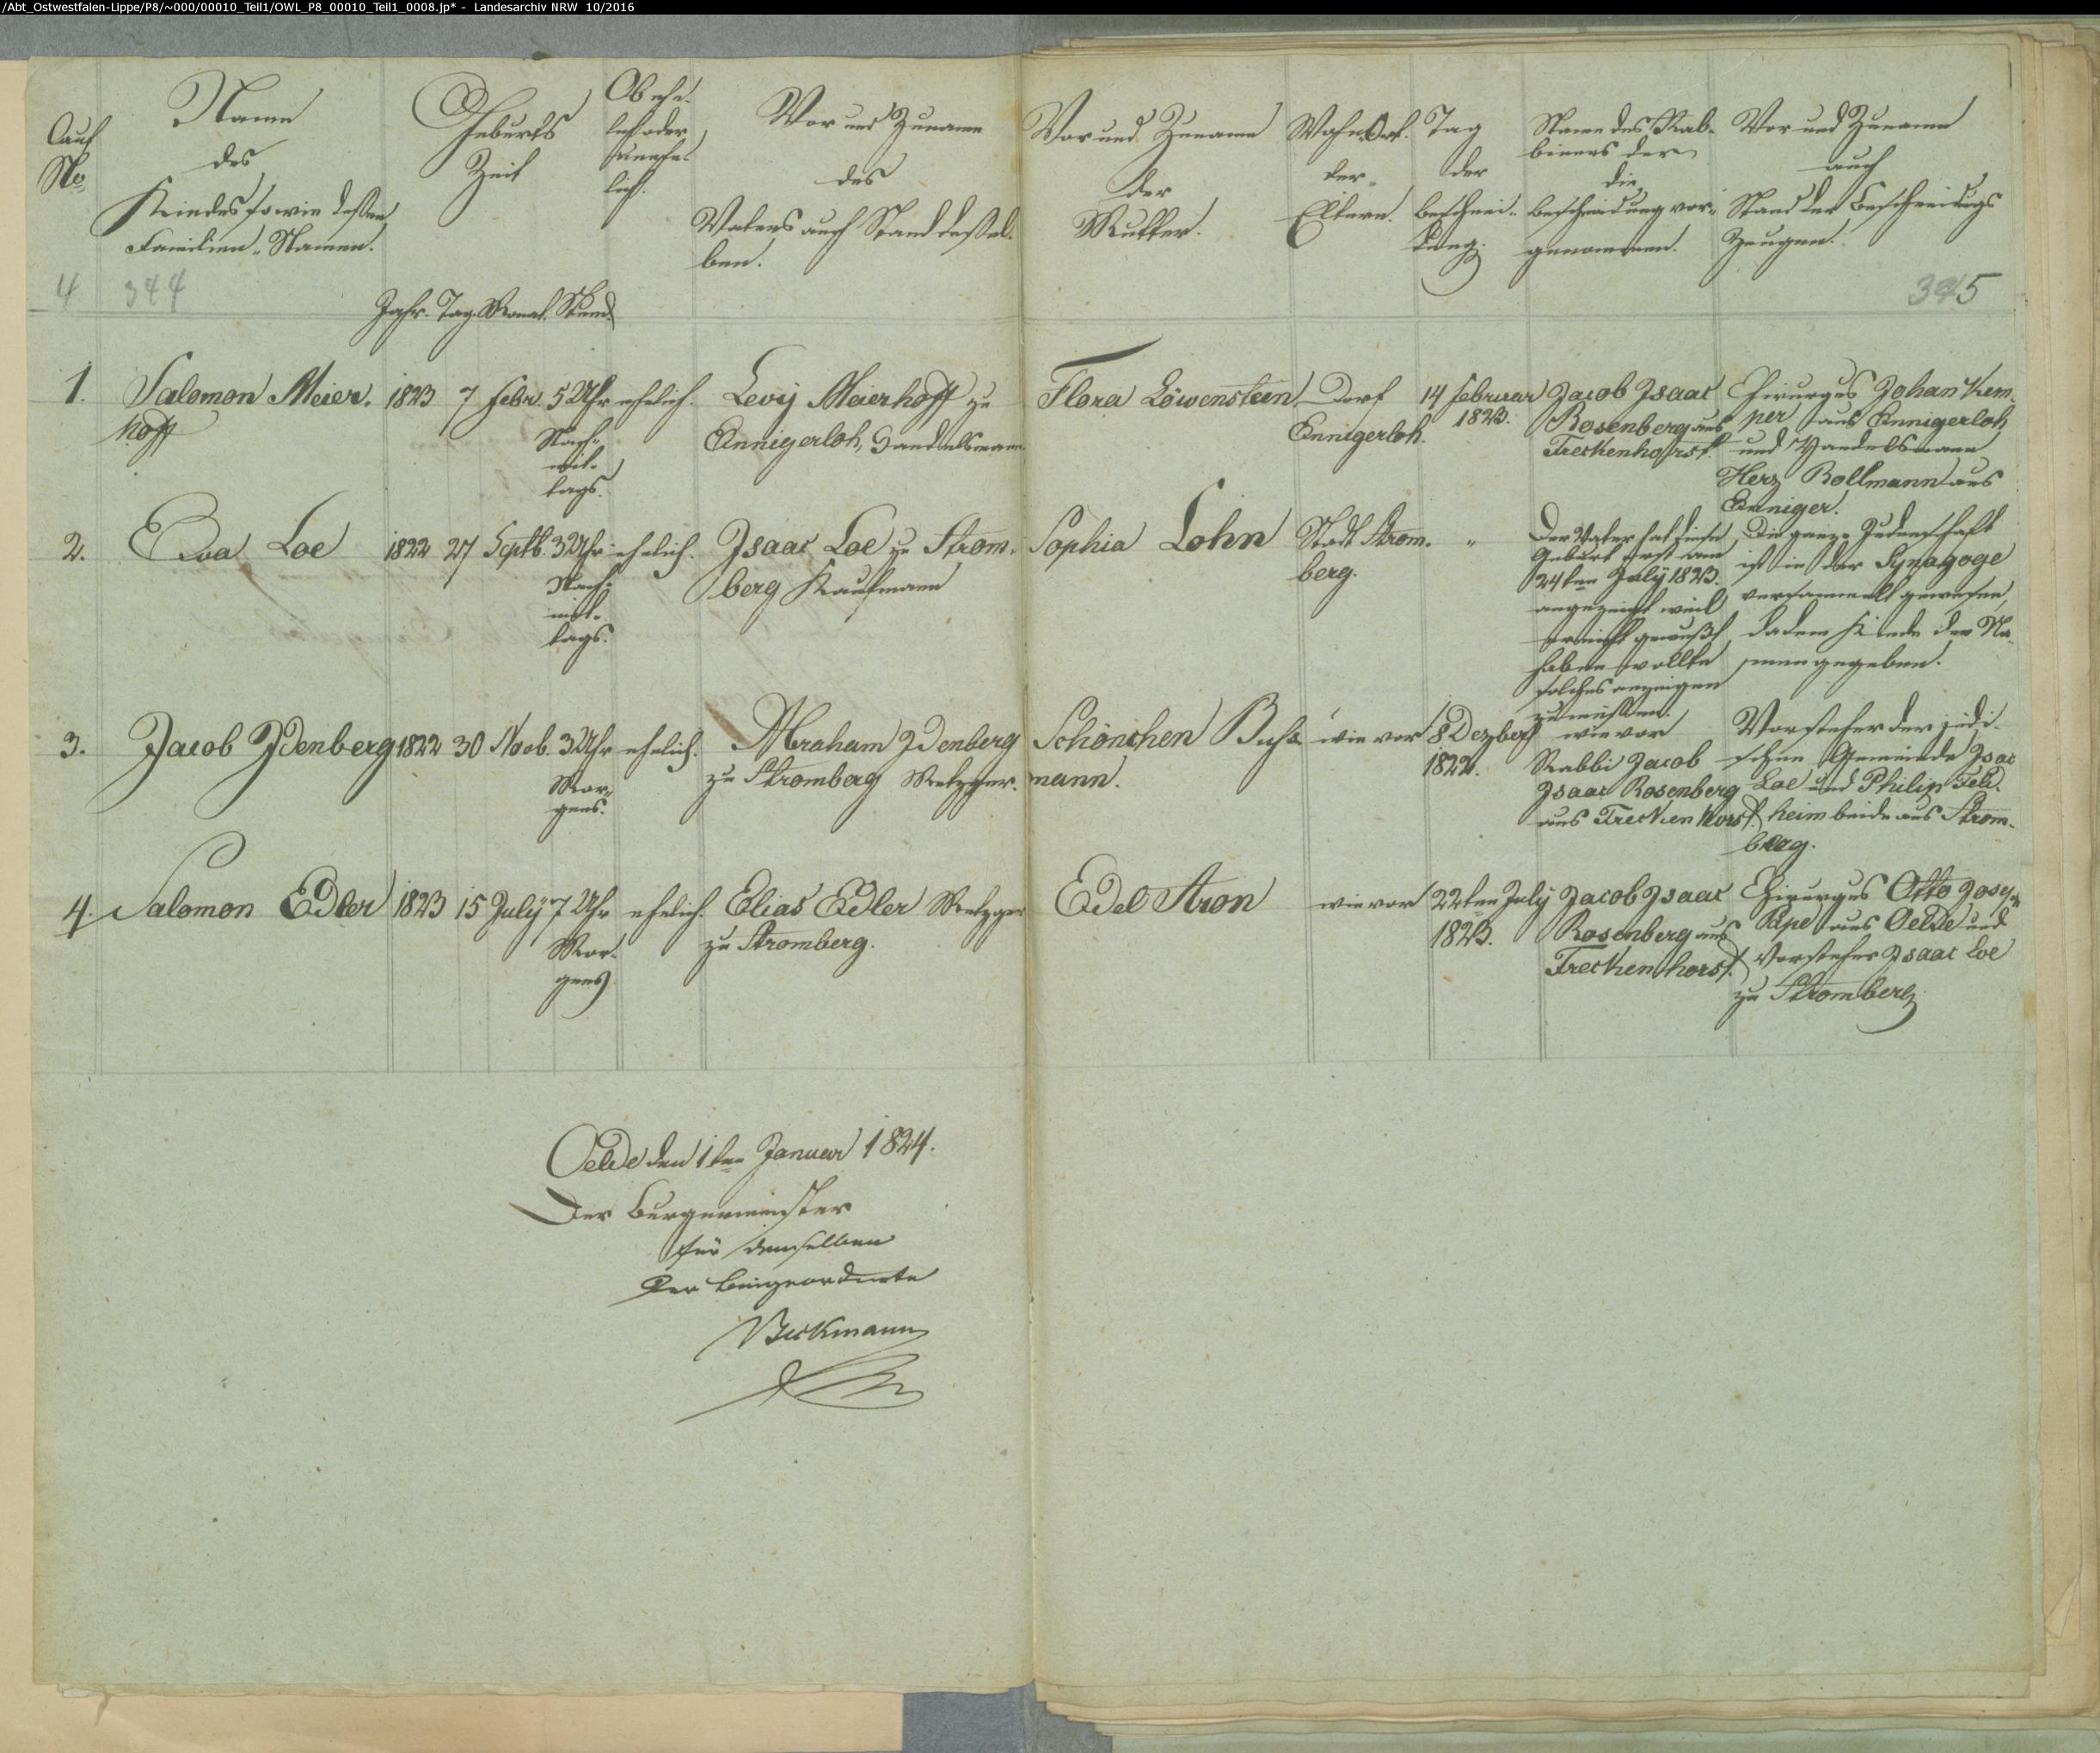 /Abt_Ostwestfalen-Lippe/P8/~000/00010_Teil1/OWL_P8_00010_Teil1_0008.jp* - Landesarchiv NRW 10/2016
Lauf
No.
Name
des
Kindes sowie dessen
Familien-Namen.
Geburts
Zeit
Jahr. Tag. Monat. Stund.
Ob ehe-
lich oder
unehe-
lich.
Vor und Zuname
des
Vaters auch Stand dessel-
ben.
Vor und Zuname
der
Mutter.
Wohn Ort.
der
Eltern.
Tag
der
beschnei-
dung.
Name des Rab-
biners der
die
beschneidung vor-
genommen.
Vor und Zuname
auch
Stand der Beschneidungs
Zeugen.
4 344
345
1.
Salomon Meier-
hoff
1823 7 Febr. 5 Uhr
Nach-
mit-
tags.
ehelich.
Levÿ Meierhoff zu
Ennigerloh, Handelsmann
Flora Löwenstein
Dorf
Ennigerloh.
14 Februar
1823.
Jacob Isaac
Rosenberg aus
Freckenhorst.
Chirurgus Johan Kem-
per aus Ennigerloh
und Handelsmann
Herz Rollmann aus
Enniger.
2.
Eva Loe
1822 27 Septb. 3 Uhr
Nach-
mit-
tags.
ehelich.
Isaac Loe zu Strom-
berg Kaufmann
Sophia Lohn
Stadt Strom-
berg.
"
Der Vater hat diese
Geburt erst am
24ten Julÿ 1823.
angezeigt weil
er nicht gewußt
haben wollte
solches anzeigen
zu müssen.
Die ganze Judenschaft
ist in der Synagoge
versammelt gewesen,
da dem Kinde der Na-
men gegeben.
3.
Jacob Idenberg
1822 30 Novb. 3 Uhr
Mor-
gens.
ehelich.
Abraham Idenberg
zu Stromberg Metzger.
Schönchen Buhs-
mann.
wie vor
8 Dezber
1822.
wie vor
Rabbi Jacob
Isaac Rosenberg
aus Freckenhorst
Vorsteher der jüdi-
schen Gemeinde Isac
Loe und Philip Feld-
heim beide aus Strom-
berg.
4.
Salomon Edler
1823 15 Julÿ 7 Uhr
Mor-
gens
ehelich.
Elias Edler Metzger
zu Stromberg.
Edel Stron
wie vor
22ten July
1823.
Jacob Isaac
Rosenberg aus
Freckenhorst.
Chirurgus Otto
Pape aus Oelde und
Vorsteher Isaac Loe
zu Stromberg
Oelde den 1ten Januar 1824.
Der Burgermeister
für denselben
Der Beigeordnete
Beckmann